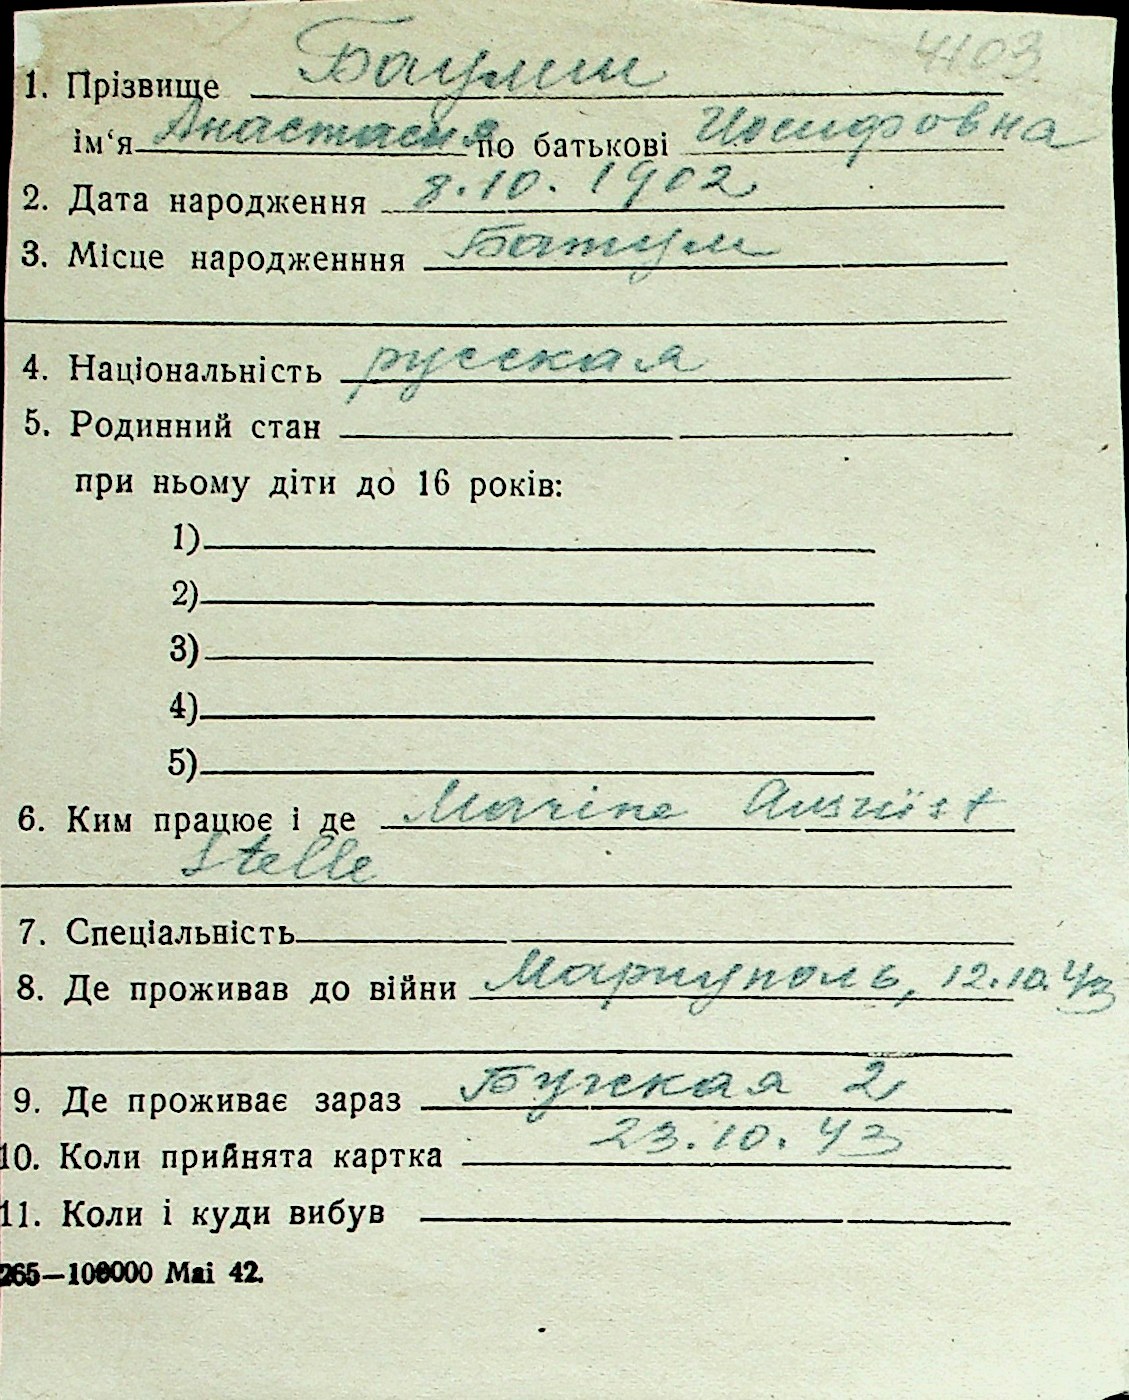 4103
1. Прізвище Баулин
ім‘я Анастасия по батькові Иосифовна
2. Дата народження 8.10.1902
3. Місце народженння Батум
4. Національність русская
5. Родинний стан
при ньому діти до 16 років:
1)
2)
3)
4)
5)
6. Ким працює і де Marine
Stelle
7. Спеціальність
8. Де проживав до війни Мариуполь, 12.10.43
9. Де проживає зараз Бугская 2
10. Коли прийнята картка 23.10.43
11. Коли і куди вибув
265—100000 Mai 42.